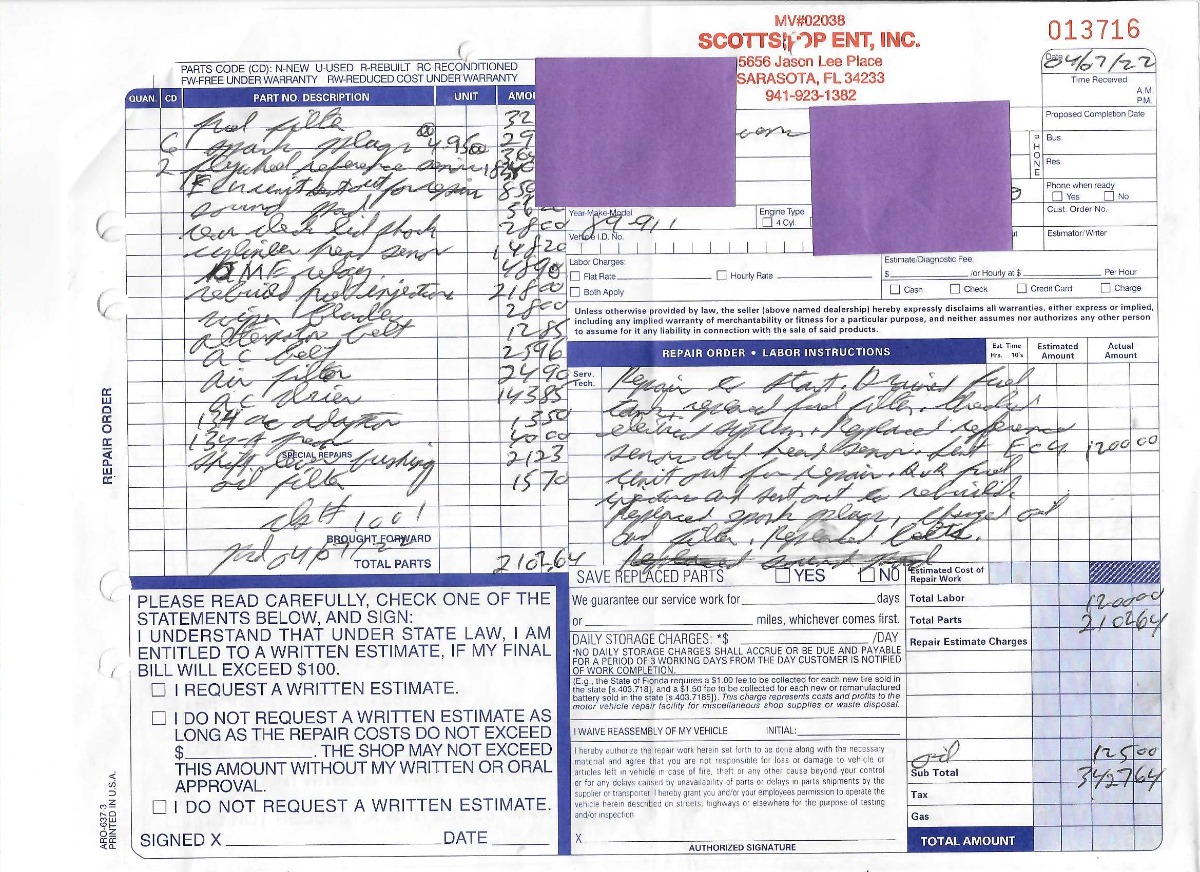 MV#02038
SCOTTSHOP ENT, INC.
5656 Jason Lee Place
SARASOTA, FL 34233
941-923-1382
013716
Date
04/67/22
Time Received
A.M.
P.M.
Proposed Completion Date
PHONE
Bus.
Res.
Phone when ready
Yes No
Cust. Order No.
Estimator/Writer
PARTS CODE (CD): N-NEW U-USED R-REBUILT RC RECONDITIONED
FW-FREE UNDER WARRANTY RW-REDUCED COST UNDER WARRANTY
QUAN. CD PART NO. DESCRIPTION UNIT AMOU
fuel filter 32
6 spark plugs @ 495 29
2 flywheel reference sensor
ECU unit sent out for repair 850
sound pad
rear deck lid shock 2800
cylinder head sensor 14820
D.M.E relay 4890
rebuild fuel injectors 21800
wiper blades 2800
alternator belt 1285
a c belt 2596
air filter 2490
a c drier 14385
134 ac adaptor 1350
134-A freon 4000
SPECIAL REPAIRS
shift lever bushing 2123
oil filter 1570
ck# 1001
BROUGHT FORWARD
pd 04/67/22
TOTAL PARTS 210264
REPAIR ORDER
Year-Make-Model
89-911
Engine Type
4 Cyl.
Vehicle I.D. No.
Labor Charges:
Flat Rate Hourly Rate
Both Apply
Estimate/Diagnostic Fee:
$ /or Hourly at $ Per Hour
Cash Check Credit Card Charge
Unless otherwise provided by law, the seller (above named dealership) hereby expressly disclaims all warranties, either express or implied,
including any implied warranty of merchantability or fitness for a particular purpose, and neither assumes nor authorizes any other person
to assume for it any liability in connection with the sale of said products.
REPAIR ORDER • LABOR INSTRUCTIONS
Est. Time
Hrs. 10's
Estimated
Amount
Actual
Amount
Serv.
Tech.
Repair to start. Drained fuel
tank, replaced fuel filter. Checked
electrical system. Replaced reference
sensor and head sensor. Sent ECU 120000
unit out for repair. R&R fuel
injectors and sent out to rebuild.
Replaced spark plugs, changed oil
and filter. Replaced belts.
Replaced sound pad
PLEASE READ CAREFULLY, CHECK ONE OF THE
STATEMENTS BELOW, AND SIGN:
I UNDERSTAND THAT UNDER STATE LAW, I AM
ENTITLED TO A WRITTEN ESTIMATE, IF MY FINAL
BILL WILL EXCEED $100.
I REQUEST A WRITTEN ESTIMATE.
I DO NOT REQUEST A WRITTEN ESTIMATE AS
LONG AS THE REPAIR COSTS DO NOT EXCEED
$ . THE SHOP MAY NOT EXCEED
THIS AMOUNT WITHOUT MY WRITTEN OR ORAL
APPROVAL.
I DO NOT REQUEST A WRITTEN ESTIMATE.
SIGNED X DATE
ARO-637-3
PRINTED IN U.S.A.
SAVE REPLACED PARTS YES NO
We guarantee our service work for days
or miles, whichever comes first.
DAILY STORAGE CHARGES: *$ /DAY
*NO DAILY STORAGE CHARGES SHALL ACCRUE OR BE DUE AND PAYABLE
FOR A PERIOD OF 3 WORKING DAYS FROM THE DAY CUSTOMER IS NOTIFIED
OF WORK COMPLETION.
(E.g., the State of Florida requires a $1.00 fee to be collected for each new tire sold in
the state [s.403.718], and a $1.50 fee to be collected for each new or remanufactured
battery sold in the state [s.403.7185]). This charge represents costs and profits to the
motor vehicle repair facility for miscellaneous shop supplies or waste disposal.
I WAIVE REASSEMBLY OF MY VEHICLE INITIAL:
I hereby authorize the repair work herein set forth to be done along with the necessary
material and agree that you are not responsible for loss or damage to vehicle or
articles left in vehicle in case of fire, theft or any other cause beyond your control
or for any delays caused by unavailability of parts or delays in parts shipments by the
supplier or transporter. I hereby grant you and/or your employees permission to operate the
vehicle herein described on streets, highways or elsewhere for the purpose of testing
and/or inspection.
X
AUTHORIZED SIGNATURE
Estimated Cost of
Repair Work
Total Labor 120000
Total Parts 210264
Repair Estimate Charges
oil 12500
Sub Total 342764
Tax
Gas
TOTAL AMOUNT